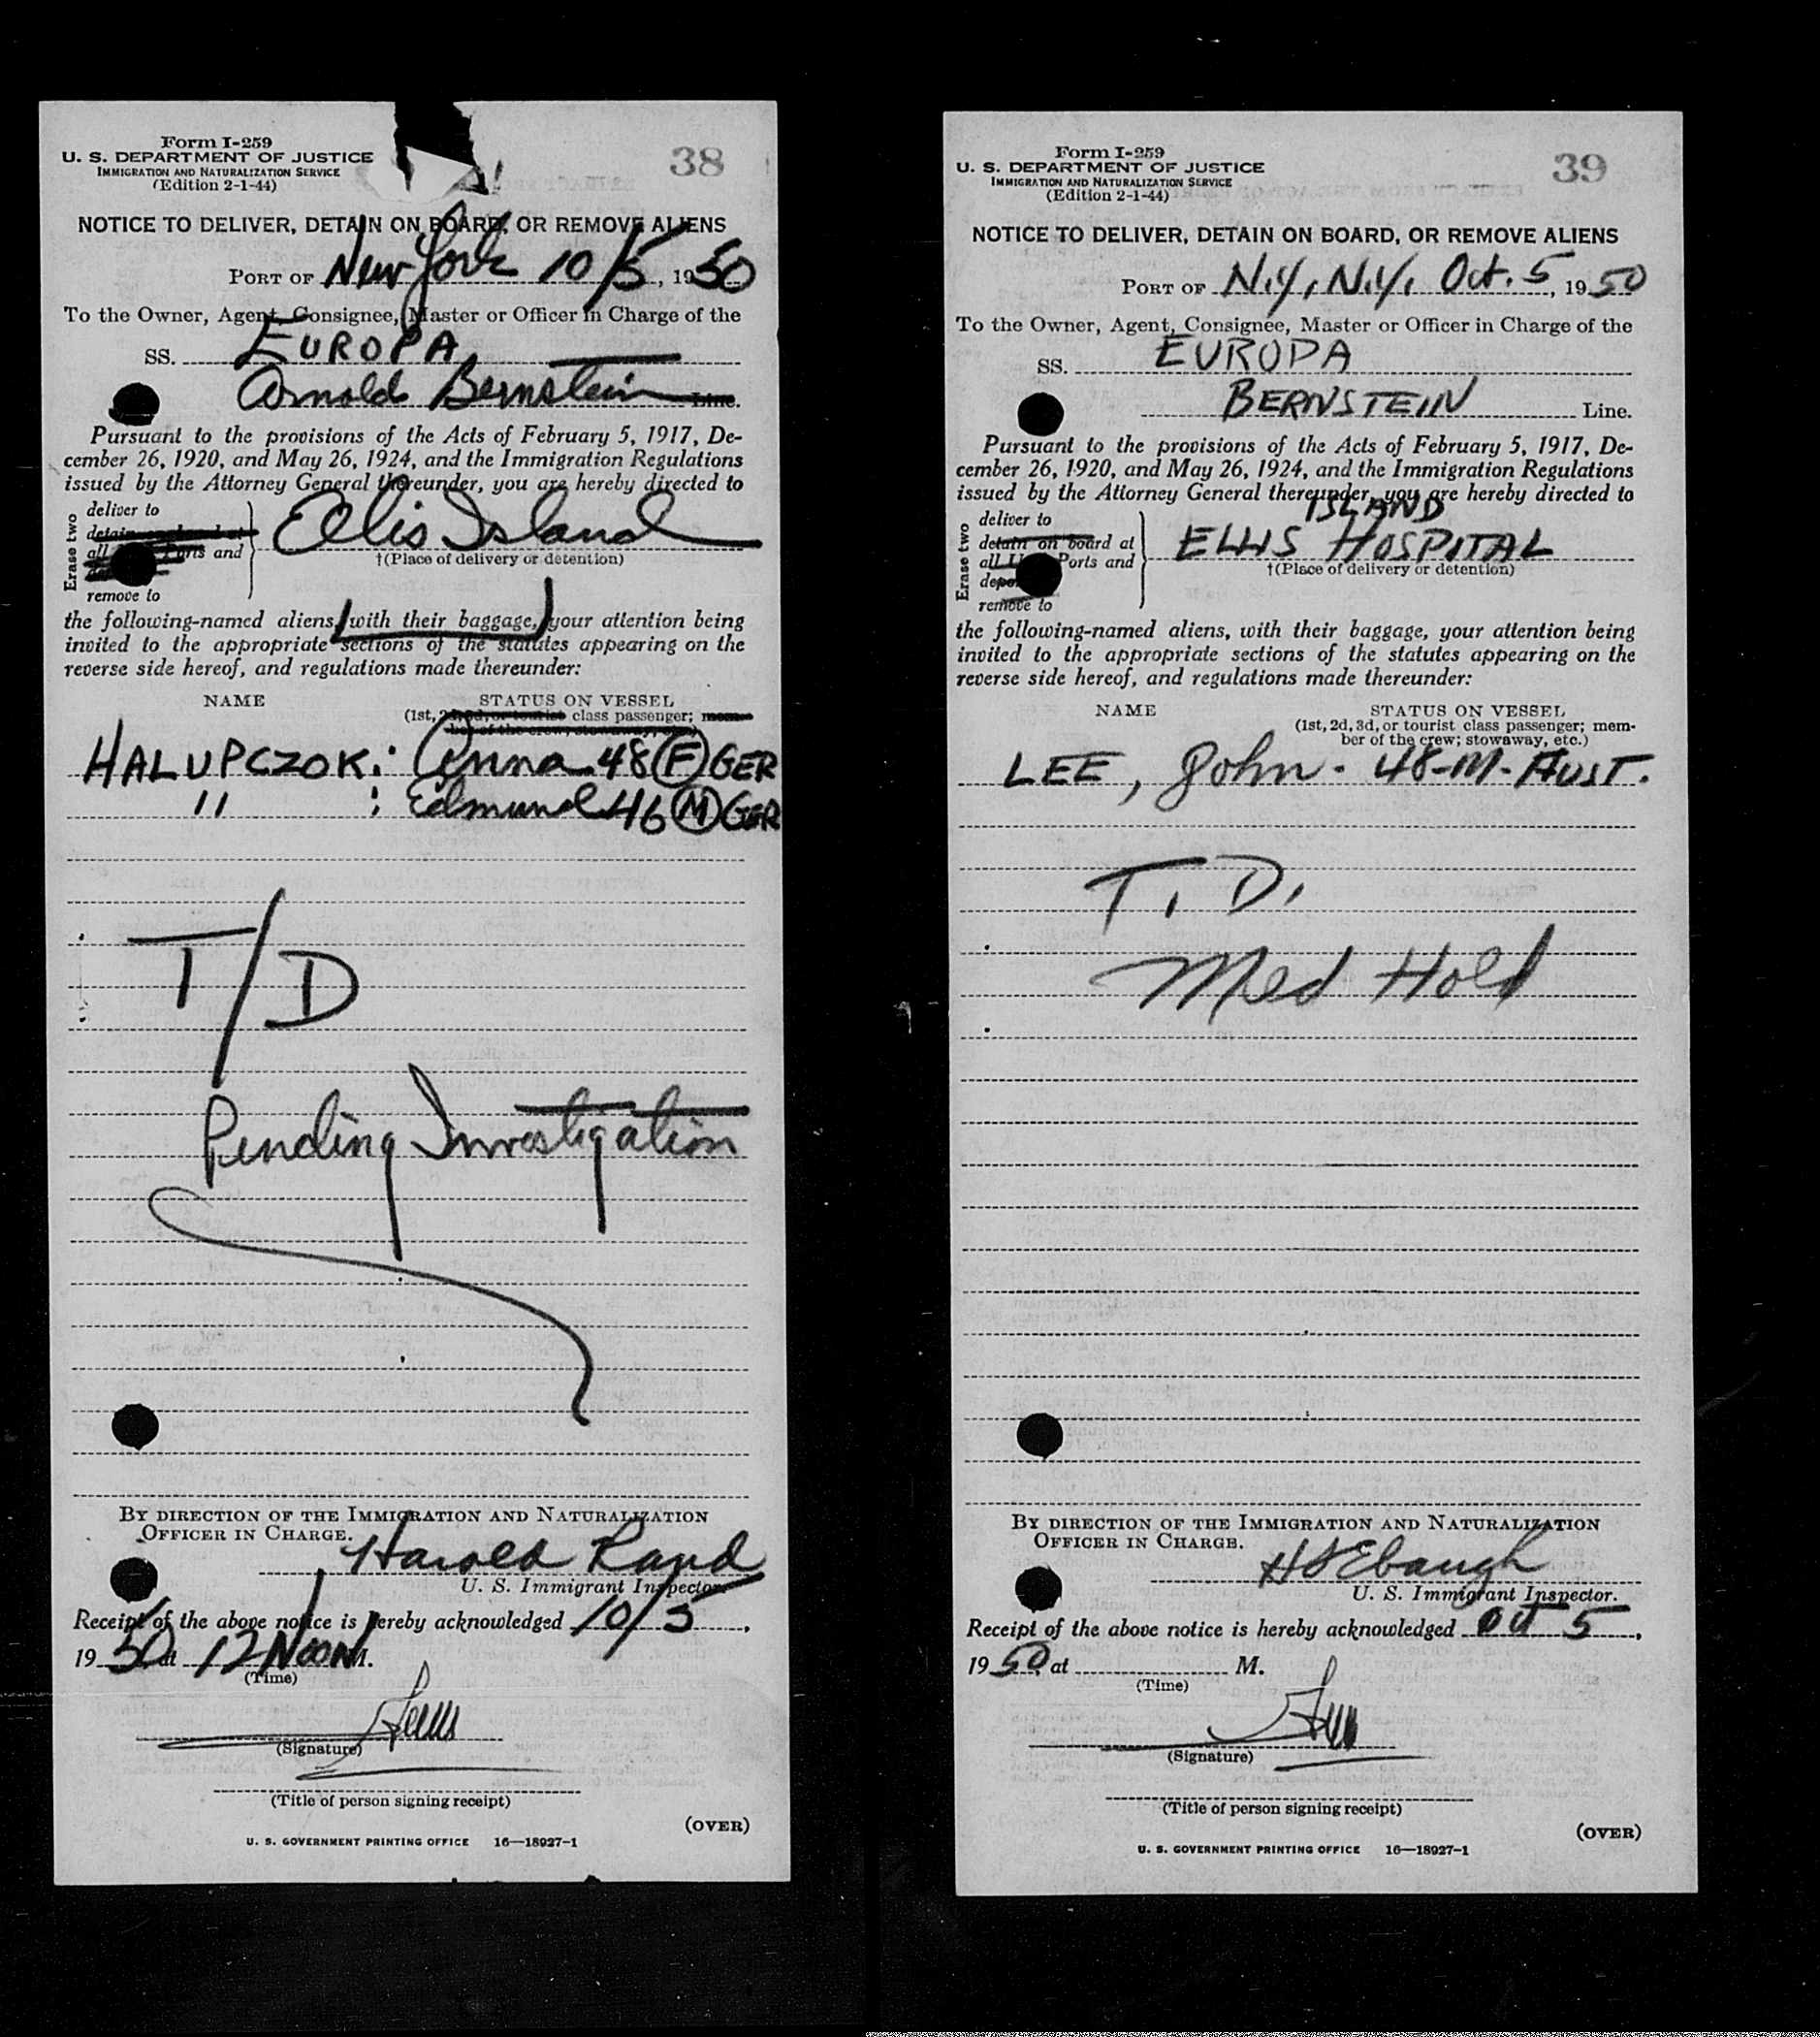 Form I-259
U. S. DEPARTMENT OF JUSTICE
IMMIGRATION AND NATURALIZATION SERVICE
(Edition 2-1-44)
38
NOTICE TO DELIVER, DETAIN ON BOARD, OR REMOVE ALIENS
PORT OF New York 10/5, 1950
To the Owner, Agent, Consignee, Master or Officer in Charge of the
SS. EUROPA
Arnold Bernstein Line.
Pursuant to the provisions of the Acts of February 5, 1917, De-
cember 26, 1920, and May 26, 1924, and the Immigration Regulations
issued by the Attorney General thereunder, you are hereby directed to
Erase two
deliver to
detain on board at
all Ports and
remove to
Ellis Island
†(Place of delivery or detention)
the following-named aliens, with their baggage, your attention being
invited to the appropriate sections of the statutes appearing on the
reverse side hereof, and regulations made thereunder:
NAME STATUS ON VESSEL
(1st, 2d, 3d, or tourist class passenger; mem-
ber of the crew; stowaway, etc.)
HALUPCZOK: Anna 48 (F) GER
" : Edmund 46 (M) GER
T/D
Pending Investigation
BY DIRECTION OF THE IMMIGRATION AND NATURALIZATION
OFFICER IN CHARGE.
Harold Rand
U. S. Immigrant Inspector.
Receipt of the above notice is hereby acknowledged 10/5,
1950 at 12 Noon M.
(Time)
(Signature)
(Title of person signing receipt)
(OVER)
U. S. GOVERNMENT PRINTING OFFICE 16—18927-1
Form I-259
U. S. DEPARTMENT OF JUSTICE
IMMIGRATION AND NATURALIZATION SERVICE
(Edition 2-1-44)
39
NOTICE TO DELIVER, DETAIN ON BOARD, OR REMOVE ALIENS
PORT OF N.Y., N.Y. Oct. 5, 1950
To the Owner, Agent, Consignee, Master or Officer in Charge of the
SS. EUROPA
BERNSTEIN Line.
Pursuant to the provisions of the Acts of February 5, 1917, De-
cember 26, 1920, and May 26, 1924, and the Immigration Regulations
issued by the Attorney General thereunder, you are hereby directed to
Erase two
deliver to
detain on board at
all U Ports and
depo
remove to
ISLAND
ELLIS HOSPITAL
†(Place of delivery or detention)
the following-named aliens, with their baggage, your attention being
invited to the appropriate sections of the statutes appearing on the
reverse side hereof, and regulations made thereunder:
NAME STATUS ON VESSEL
(1st, 2d, 3d, or tourist class passenger; mem-
ber of the crew; stowaway, etc.)
LEE, John - 48-M- AUST.
T. D.
Med Hold
BY DIRECTION OF THE IMMIGRATION AND NATURALIZATION
OFFICER IN CHARGE.
H S Ebaugh
U. S. Immigrant Inspector.
Receipt of the above notice is hereby acknowledged Oct 5,
1950 at M.
(Time)
(Signature)
(Title of person signing receipt)
(OVER)
U. S. GOVERNMENT PRINTING OFFICE 16—18927-1